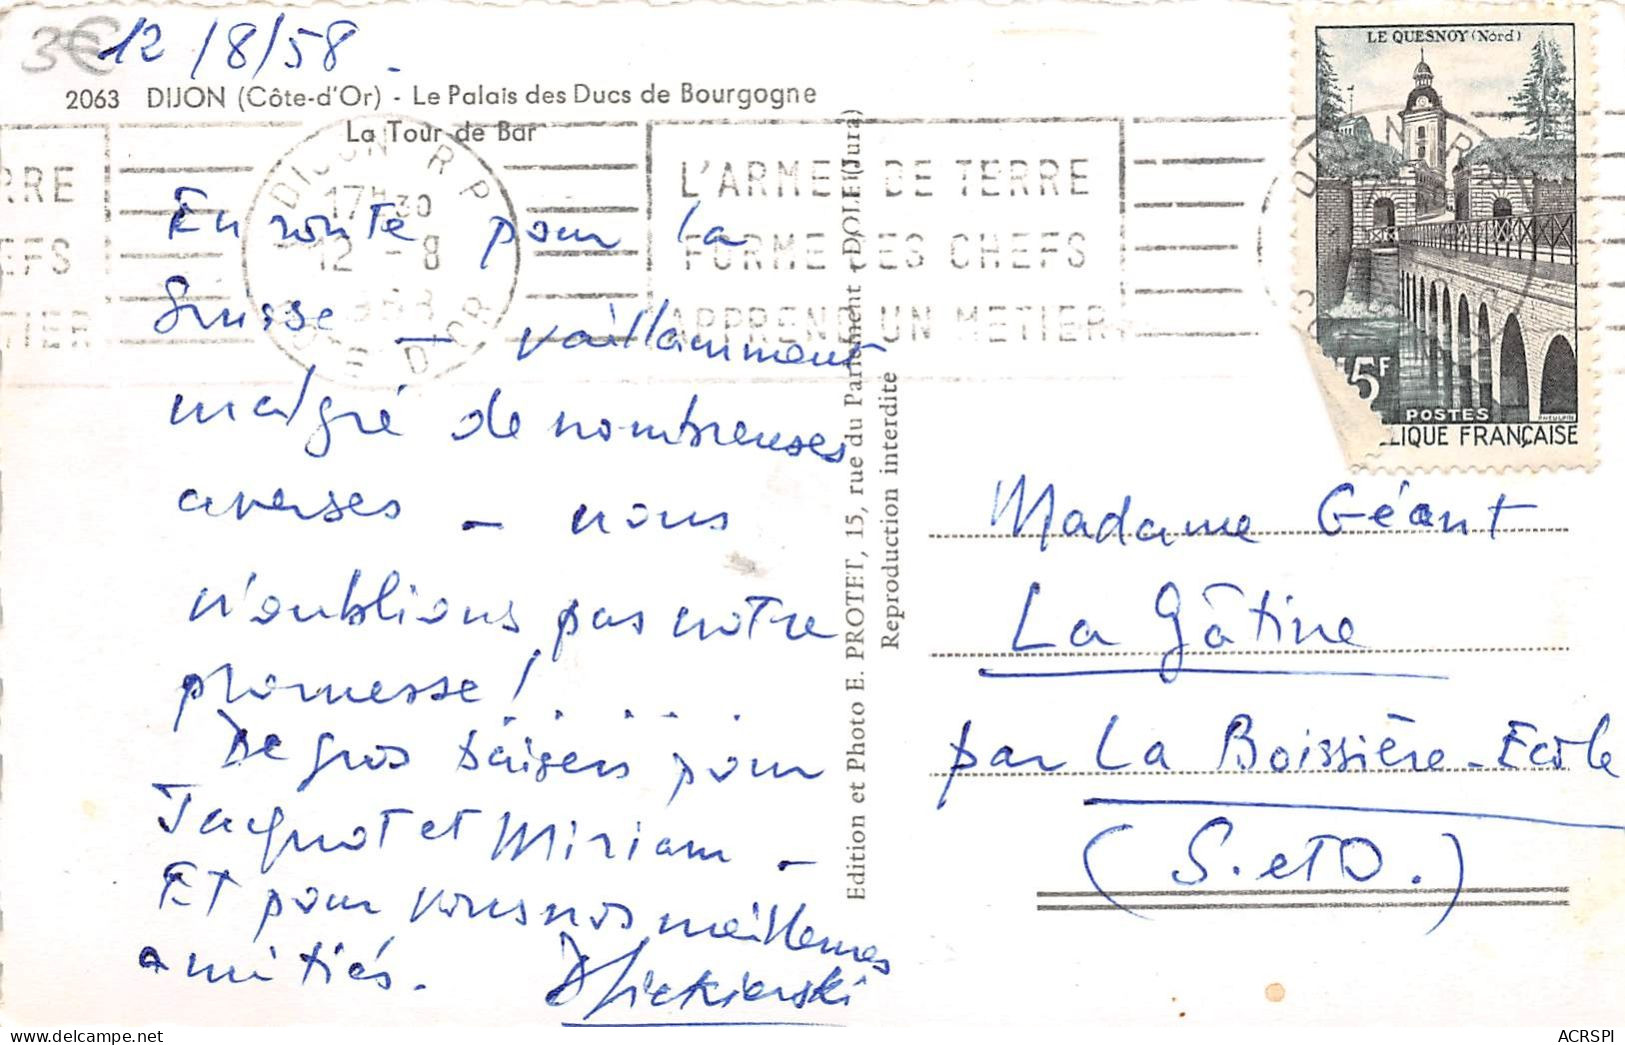 3€
12/8/58.
2063 DIJON (Côte-d'Or) - Le Palais des Ducs de Bourgogne
La Tour de Bar
En route pour la
Suisse - vaillamment
malgré de nombreuses
averses - nous
n'oublions pas notre
promesse !
. . . . .
De gros baisers pour
Jacquot et Miriam -
Et pour vous nos meilleures
amitiés.
DIJON R.P.
17H30
12 - 8
1958
COTE D'OR
L'ARMEE DE TERRE
FORME DES CHEFS
APPREND UN METIER
RRE
EFS
TIER
Edition et Photo E. PROTET, 15, rue du Parlement, DOLE (Jura)
Reproduction interdite
LE QUESNOY (Nord)
15F
POSTES
LIQUE FRANÇAISE
DIJON R.P.
Madame Géant
La Gâtine
par La Boissière-Ecole
(S. et O.)
ACRSPI